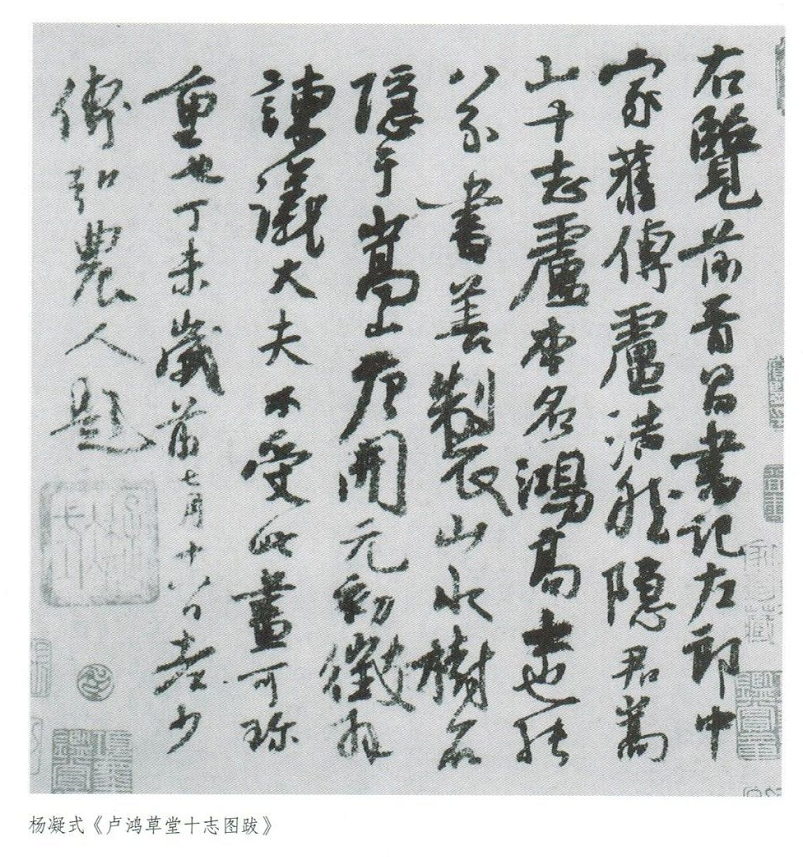 右覽前晉昌書記左郎中
家舊傳盧浩然隱君嵩
山十志盧本名鴻高士也能
八分書善製衣山水樹石
隱于嵩山唐開元初徵拜
諫議大夫不受此畫可珍
重也丁未歲前七月十八日老少
傅
農人題
杨凝式《卢鸿草堂十志图跋》